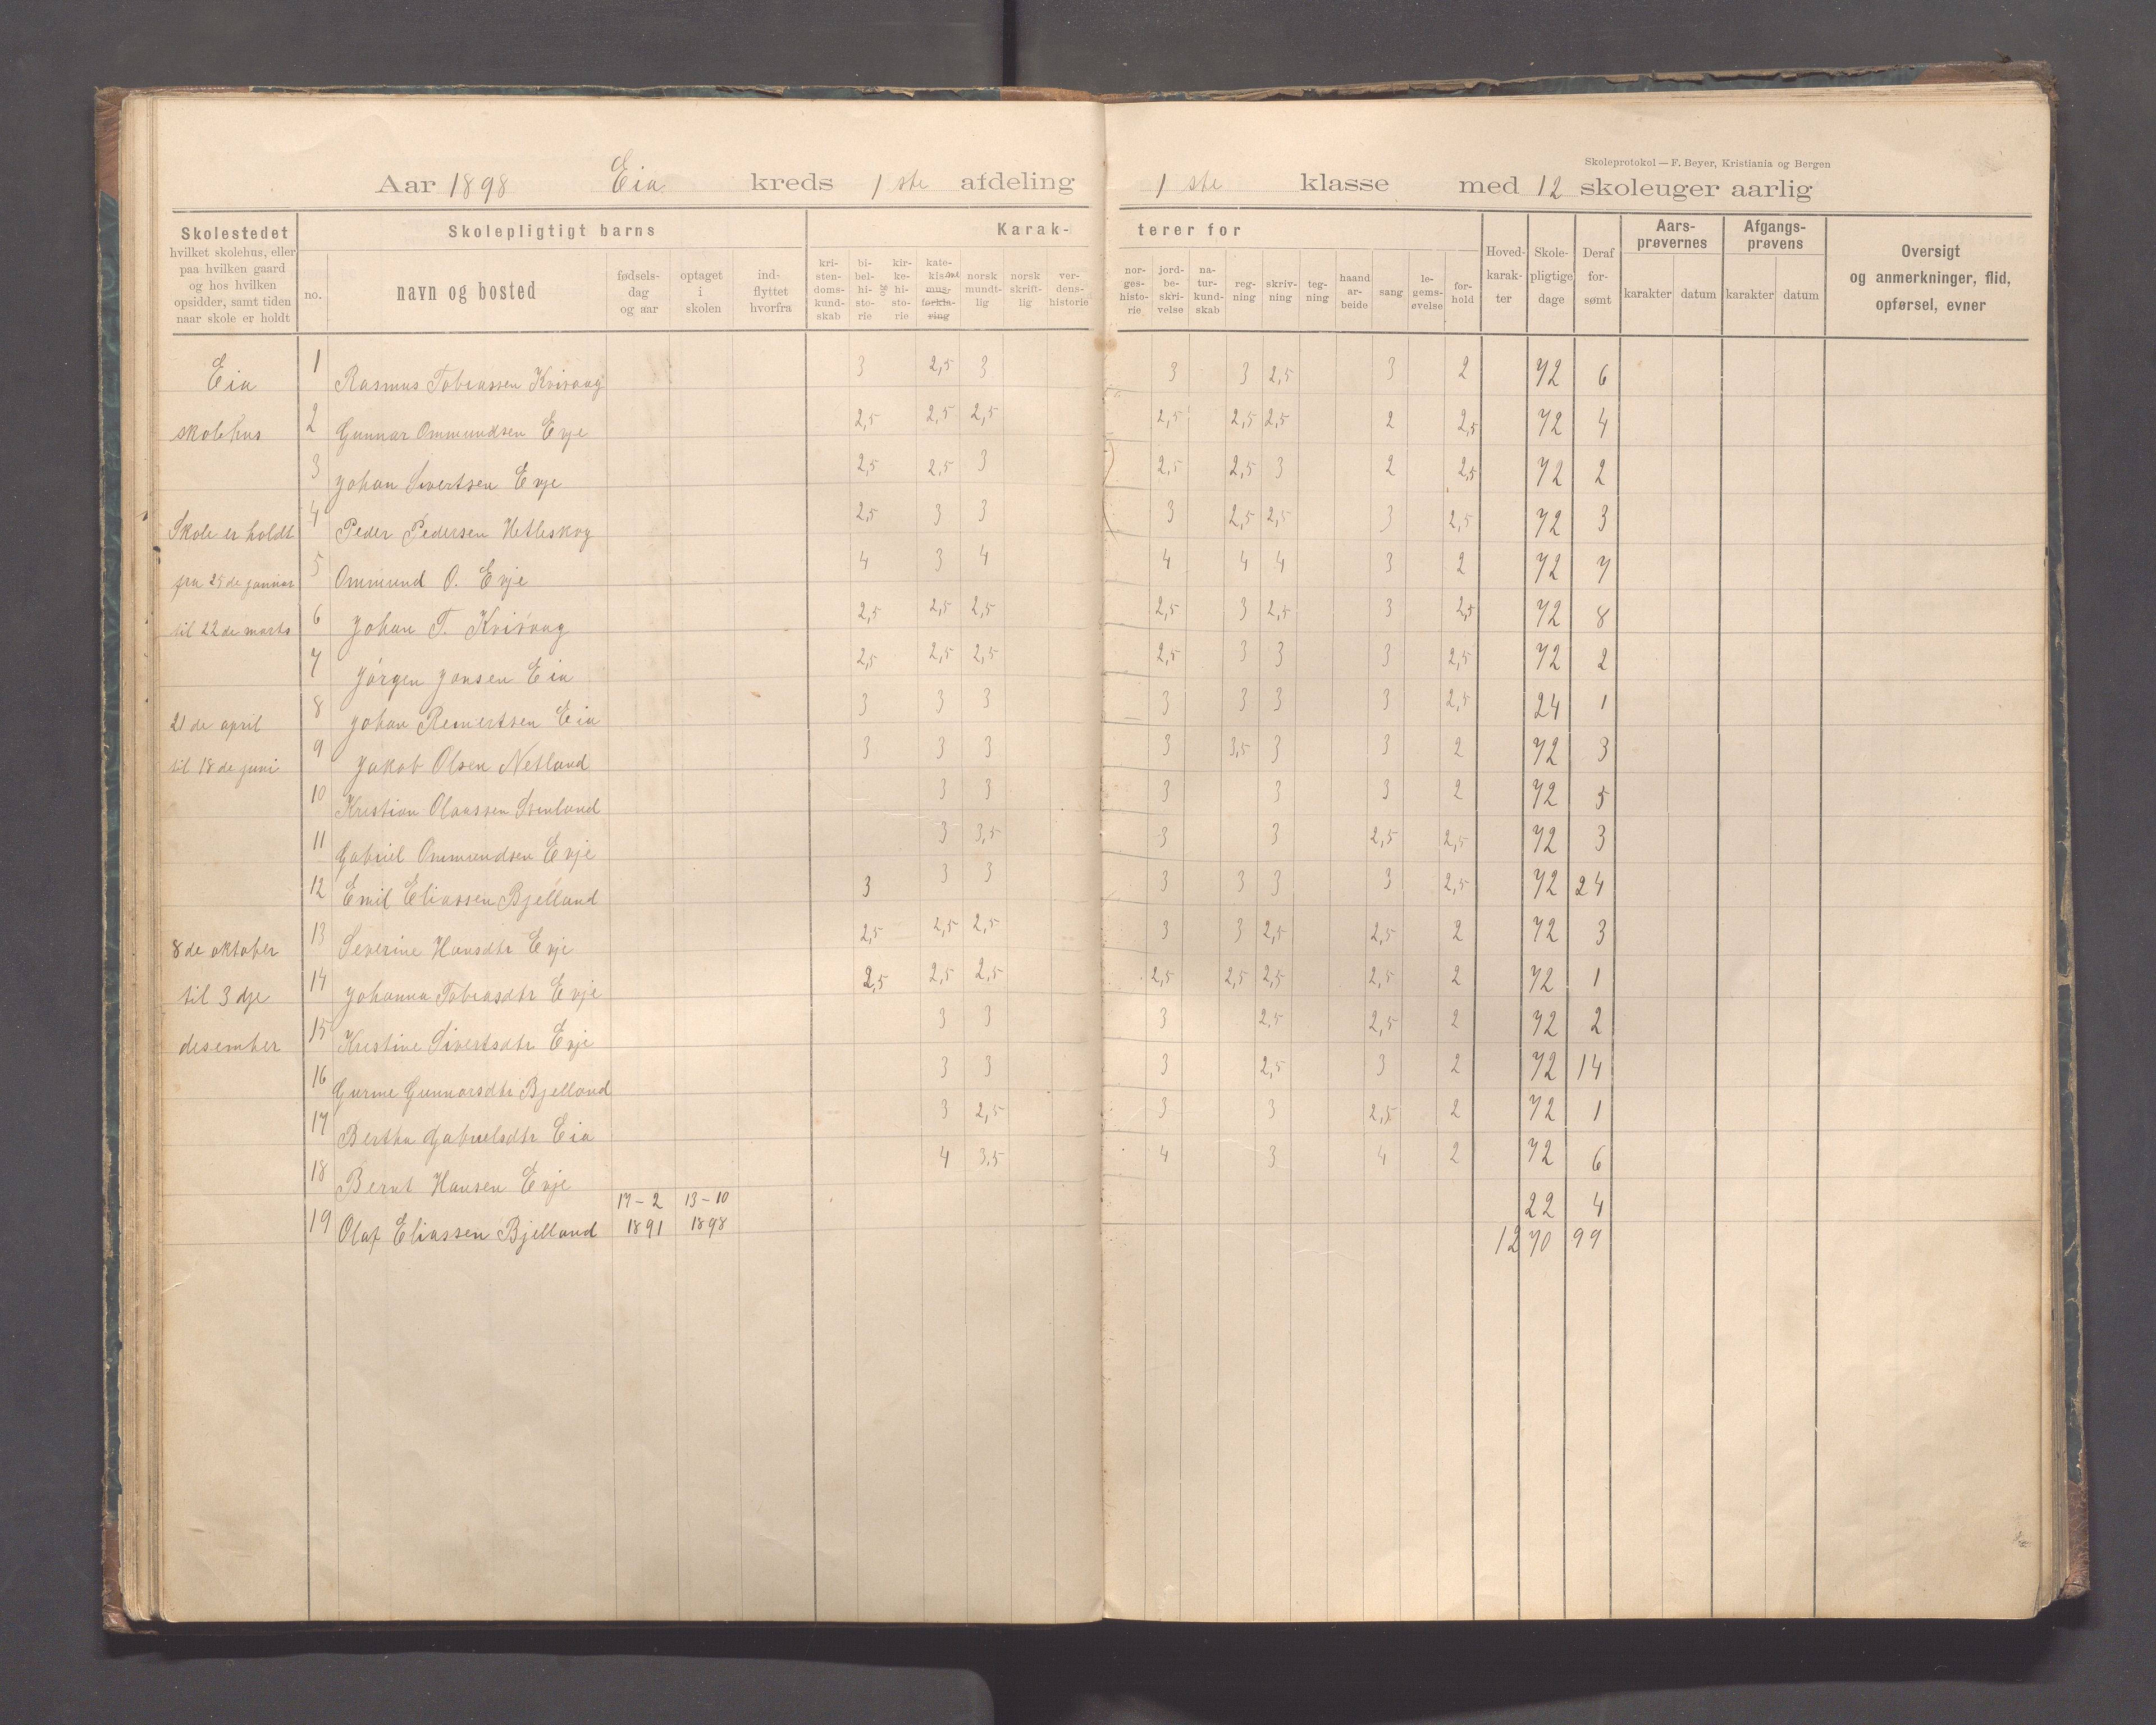 Skoleprotokol — F. Beyer, Kristiania og Bergen
Aar 1898 Eia kreds 1 ste afdeling 1 ste klasse med 12 skoleuger aarlig
Skolestedet hvilket skolehus, eller paa hvilken gaard og hos hvilken opsidder, samt tiden naar skole er holdt
Skolepligtigt barns
no. navn og bosted fødsels-dag og aar optaget i skolen ind-flyttet hvorfra
Karak- terer for
kri-sten-doms-kund-skab bi-bel-hi-sto-rie kir-ke-hi-sto-rie kate-kis-me mus-forkla-ring norsk mundt-lig norsk skrift-lig ver-dens-historie
nor-ges-histo-rie jord-be-skri-velse na-tur-kund-skab reg-ning skriv-ning teg-ning haand ar-beide sang le-gems-øvelse for-hold
Hoved-karak-ter Skole-pligtige dage Deraf for-sømt
Aars-prøvernes karakter datum
Afgangs-prøvens karakter datum
Oversigt og anmerkninger, flid, opførsel, evner
Eia 1 Rasmus Tobiassen Kvivaag 3 2,5 3 3 3 2,5 3 2 72 6
skolehus 2 Gunnar Ommundsen Evje 2,5 2,5 2,5 2,5 2,5 2,5 2 2,5 72 4
3 Johan Sivertsen Evje 2,5 2,5 3 2,5 2,5 3 2 2,5 72 2
Skole er holdt 4 Peder Pedersen Hetleskog 2,5 3 3 3 2,5 2,5 3 2,5 72 3
fra 25de januar 5 Ommund O. Evje 4 3 4 4 4 4 3 2 72 7
til 22de marts 6 Johan T. Kvivaag 2,5 2,5 2,5 2,5 3 2,5 3 2,5 72 8
7 Jørgen Jonsen Eia 2,5 2,5 2,5 2,5 3 3 3 2,5 72 2
21de april 8 Johan Reinertsen Eia 3 3 3 3 3 3 3 2,5 24 1
til 18de juni 9 Jakob Olsen Netland 3 3 3 3 3,5 3 3 2 72 3
10 Kristian Olaussen 3 3 3 3 3 2 72 5
11 Gabriel Ommundsen Evje 3 3,5 3 3 2,5 2,5 72 3
12 Emil Eliassen Bjelland 3 3 3 3 3 3 3 2,5 72 24
8de oktober 13 Severine Hansdtr Evje 2,5 2,5 2,5 3 3 2,5 2,5 2 72 3
til 3dje 14 Johanna Tobiasdtr Evje 2,5 2,5 2,5 2,5 2,5 2,5 2,5 2 72 1
desember 15 Kristine Sivertsdtr Evje 3 3 3 2,5 2,5 2 72 2
16 Gurine Gunnarsdtr Bjelland 3 3 3 2,5 3 2 72 14
17 Bertha Gabrielsdtr Eia 3 2,5 3 3 2,5 2 72 1
18 Bernt Hansen Evje 4 3,5 4 3 4 2 72 6
19 Olaf Eliassen Bjelland 17-2 1891 13-10 1898 22 4
1270 99